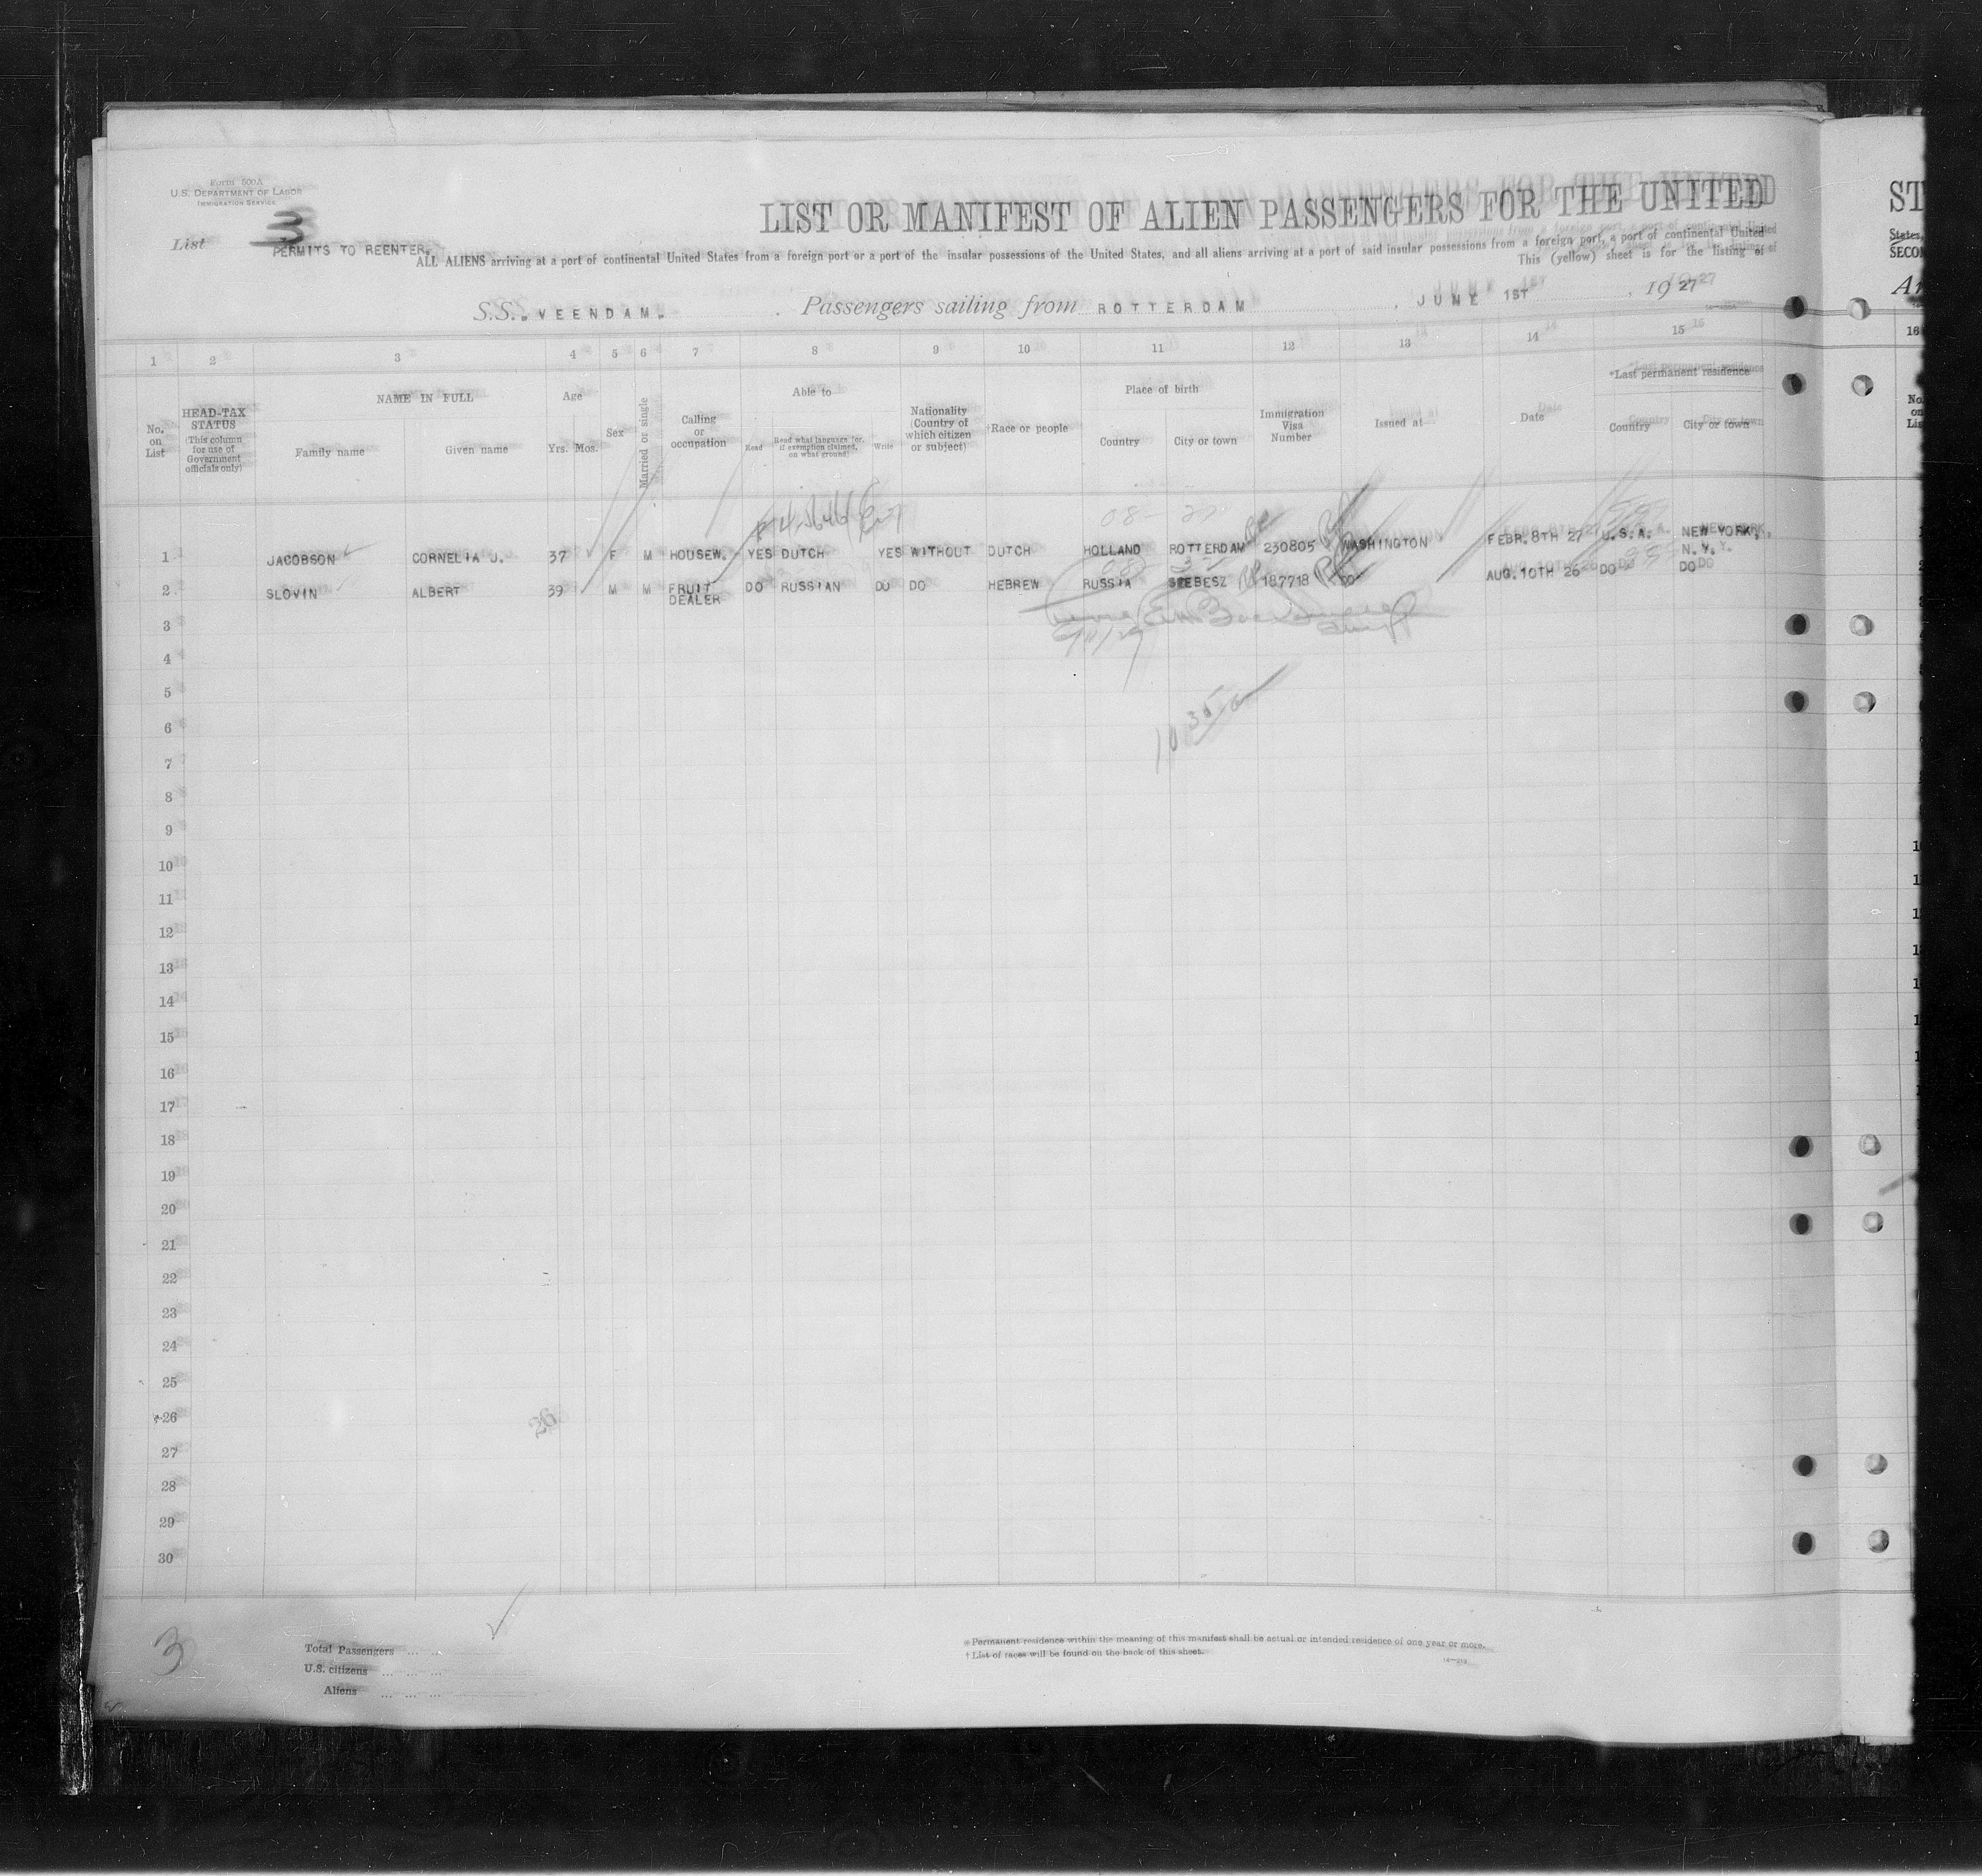 Form 500A
U.S. DEPARTMENT OF LABOR
IMMIGRATION SERVICE
List 3
PERMITS TO REENTER.
LIST OR MANIFEST OF ALIEN PASSENGERS FOR THE UNITED
ST
ALL ALIENS arriving at a port of continental United States from a foreign port or a port of the insular possessions of the United States, and all aliens arriving at a port of said insular possessions from a foreign port, a port of continental United
States,
This (yellow) sheet is for the listing of
SECON
S.S. "VEENDAM". Passengers sailing from ROTTERDAM, JUNE 1ST, 1927
Ar
1 2 3 4 5 6 7 8 9 10 11 12 13 14 15
16
No. on List
HEAD-TAX STATUS (This column for use of Government officials only)
NAME IN FULL
Family name
Given name
Age
Yrs. Mos.
Sex
Married or single
Calling or occupation
Able to
Read
Read what language (or, if exemption claimed, on what ground)
Write
Nationality (Country of which citizen or subject)
†Race or people
Place of birth
Country
City or town
Immigration Visa Number
Issued at
Date
*Last permanent residence
Country
City or town
No. on List
1 JACOBSON CORNELIA J. 37 F M HOUSEW. YES DUTCH YES WITHOUT DUTCH HOLLAND ROTTERDAM 230805 WASHINGTON FEBR. 8TH 27 U.S.A. NEW YORK, N.Y.
2 SLOVIN ALBERT 39 M M FRUIT DEALER DO RUSSIAN DO DO HEBREW RUSSIA 187718 DO AUG. 10TH 26 DO DO
3
4
5
6
7
8
9
10
11
12
13
14
15
16
17
18
19
20
21
22
23
24
25
26
26
27
28
29
30
3
Total Passengers ...
U.S. citizens ... ... ...
Aliens ... ... ...
* Permanent residence within the meaning of this manifest shall be actual or intended residence of one year or more.
† List of races will be found on the back of this sheet.